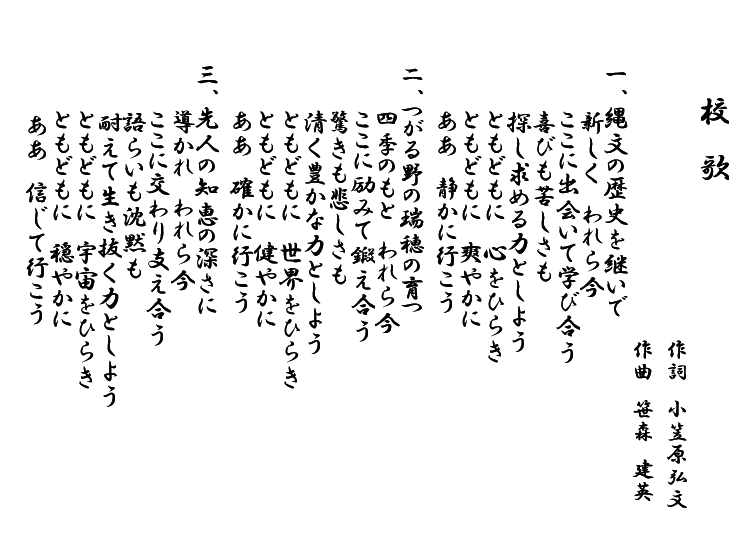 校歌
作詞 小笠原弘文
作曲 笹森 建英
一、縄文の歴史を継いで
新しく われら今
ここに出会いて学び合う
喜びも苦しさも
探し求める力としよう
ともどもに 心をひらき
ともどもに 爽やかに
ああ 静かに行こう
二、つがる野の瑞穂の育つ
四季のもと われら今
ここに励みて鍛え合う
驚きも悲しさも
清く豊かな力としよう
ともどもに 世界をひらき
ともどもに 健やかに
ああ 確かに行こう
三、先人の知恵の深さに
導かれ われら今
ここに交わり支え合う
語らいも沈黙も
耐えて生き抜く力としよう
ともどもに 宇宙をひらき
ともどもに 穏やかに
ああ 信じて行こう